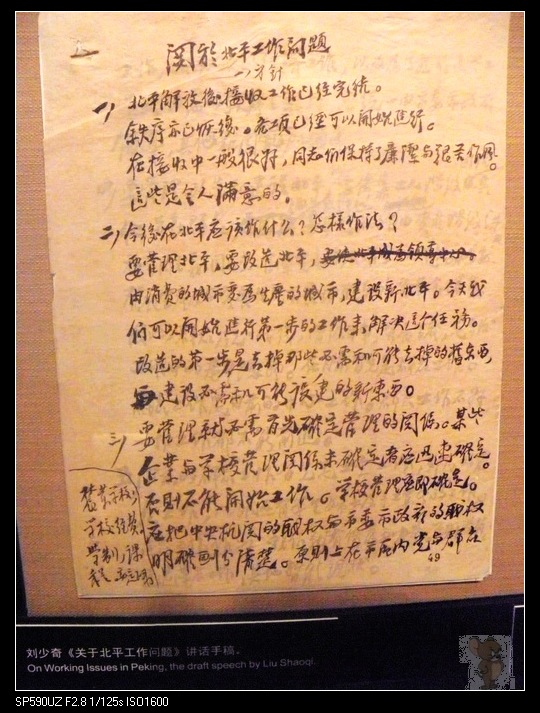 关於北平工作问題
一、方針
一、北平解放後接收工作已经完結。
秩序亦已恢復。各项已经可以開始進行。
在接收中一般很好，同志们保持了廉潔与艰苦作風。
這些是令人滿意的。
二、今後在北平应该作什么？怎樣作法？
要管理北平，要改造北平，
由消費的城市变為生產的城市，建设新北平。今天我
们可以開始進行第一步的工作来解决這个任務。
改造的第一步是去掉那些不需和可能去掉的舊东西
建设必需和可能设建的新東西。
三、要管理就需首先確定管理的関係。某些
企業与学校管理関係未確定者应迅速確定。
否則不能開始工作。学校管理应即確定。
应把中央机関的职权与市委市政府的职权
明確劃分清楚。原則上在市区内党与群众
学校经费
学制、课
程
49
刘少奇《关于北平工作问题》讲话手稿。
On Working Issues in Peking, the draft speech by Liu Shaoqi.
SP590UZ F2.8 1/125s ISO1600